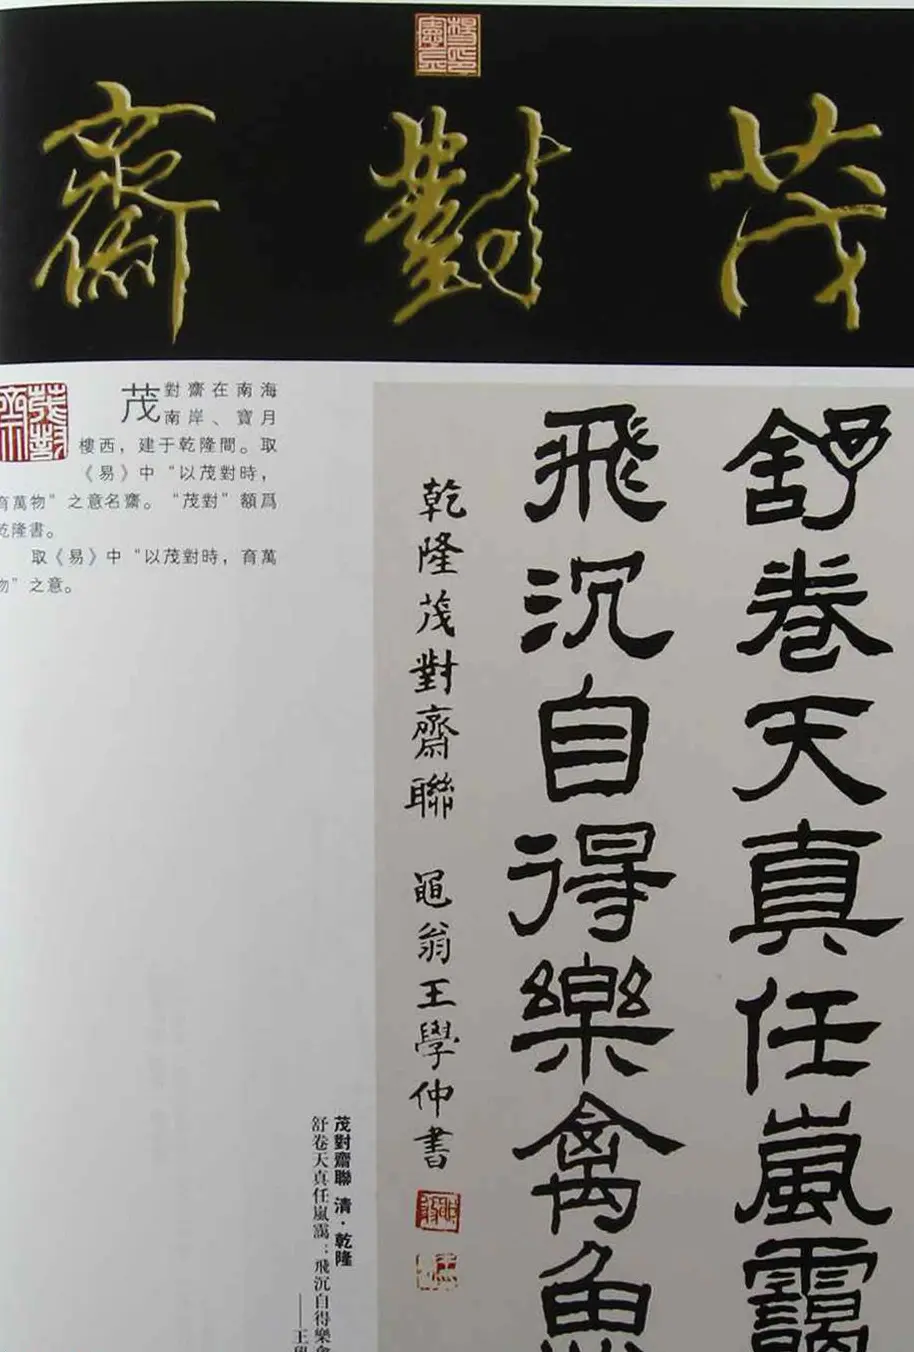 茂對齋
茂對齋在南海
南岸、寶月
樓西，建于乾隆間。取
《易》中“以茂對時，
育萬物”之意名齋。“茂對”額爲
乾隆書。
取《易》中“以茂對時，育萬
物”之意。
舒卷天真任嵐靄
飛沉自得樂禽魚
乾隆茂對齋聯 黽翁王學仲書
茂對齋聯 清·乾隆
舒卷天真任嵐靄；飛沉自得樂禽
——王學